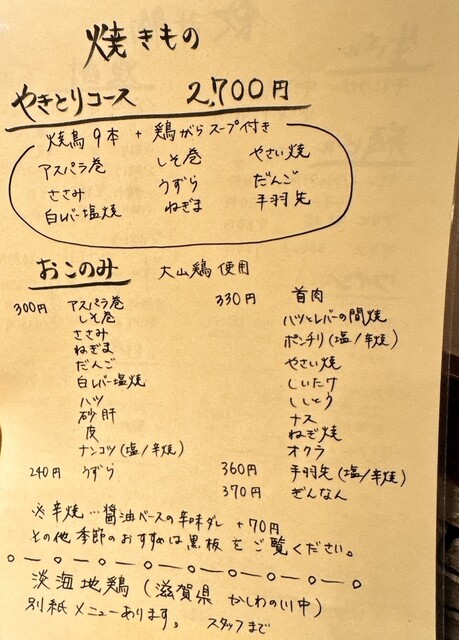 焼きもの
やきとりコース 2,700円
焼鳥9本 + 鶏がらスープ付き
アスパラ巻 しそ巻 やさい焼
ささみ うずら だんご
白レバー塩焼 ねぎま 手羽先
おこのみ 大山鶏使用
300円 アスパラ巻 330円 首肉
しそ巻 ハツとレバーの間焼
ささみ ボンチリ(塩/辛焼)
ねぎま やさい焼
だんご しいたけ
白レバー塩焼 ししとう
ハツ ナス
砂肝 ねぎ焼
皮 オクラ
ナンコツ(塩/辛焼) 360円 手羽先(塩/辛焼)
240円 うずら 370円 ぎんなん
※辛焼…醤油ベースの辛味ダレ +70円
その他季節のおすすめは黒板をご覧ください。
淡海地鶏(滋賀県 かしわの川中)
別紙メニューあります。 スタッフまで